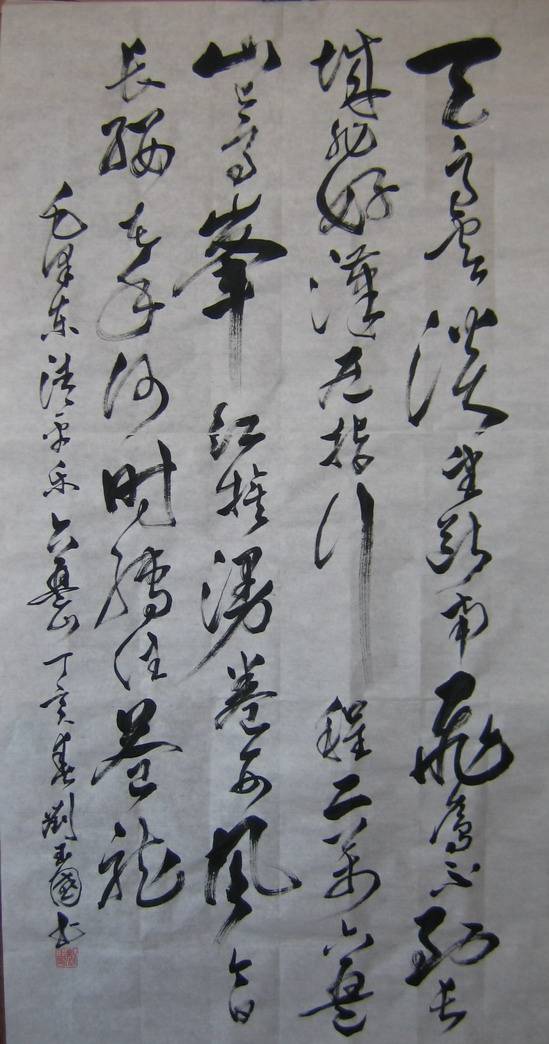 天高雲淡望断南飛雁不到长
城非好漢屈指行程二萬六盘
山上高峯红旗漫卷西風今日
长缨在手何时缚住苍龙
毛泽东清平乐六盘山丁亥春劉玉國书